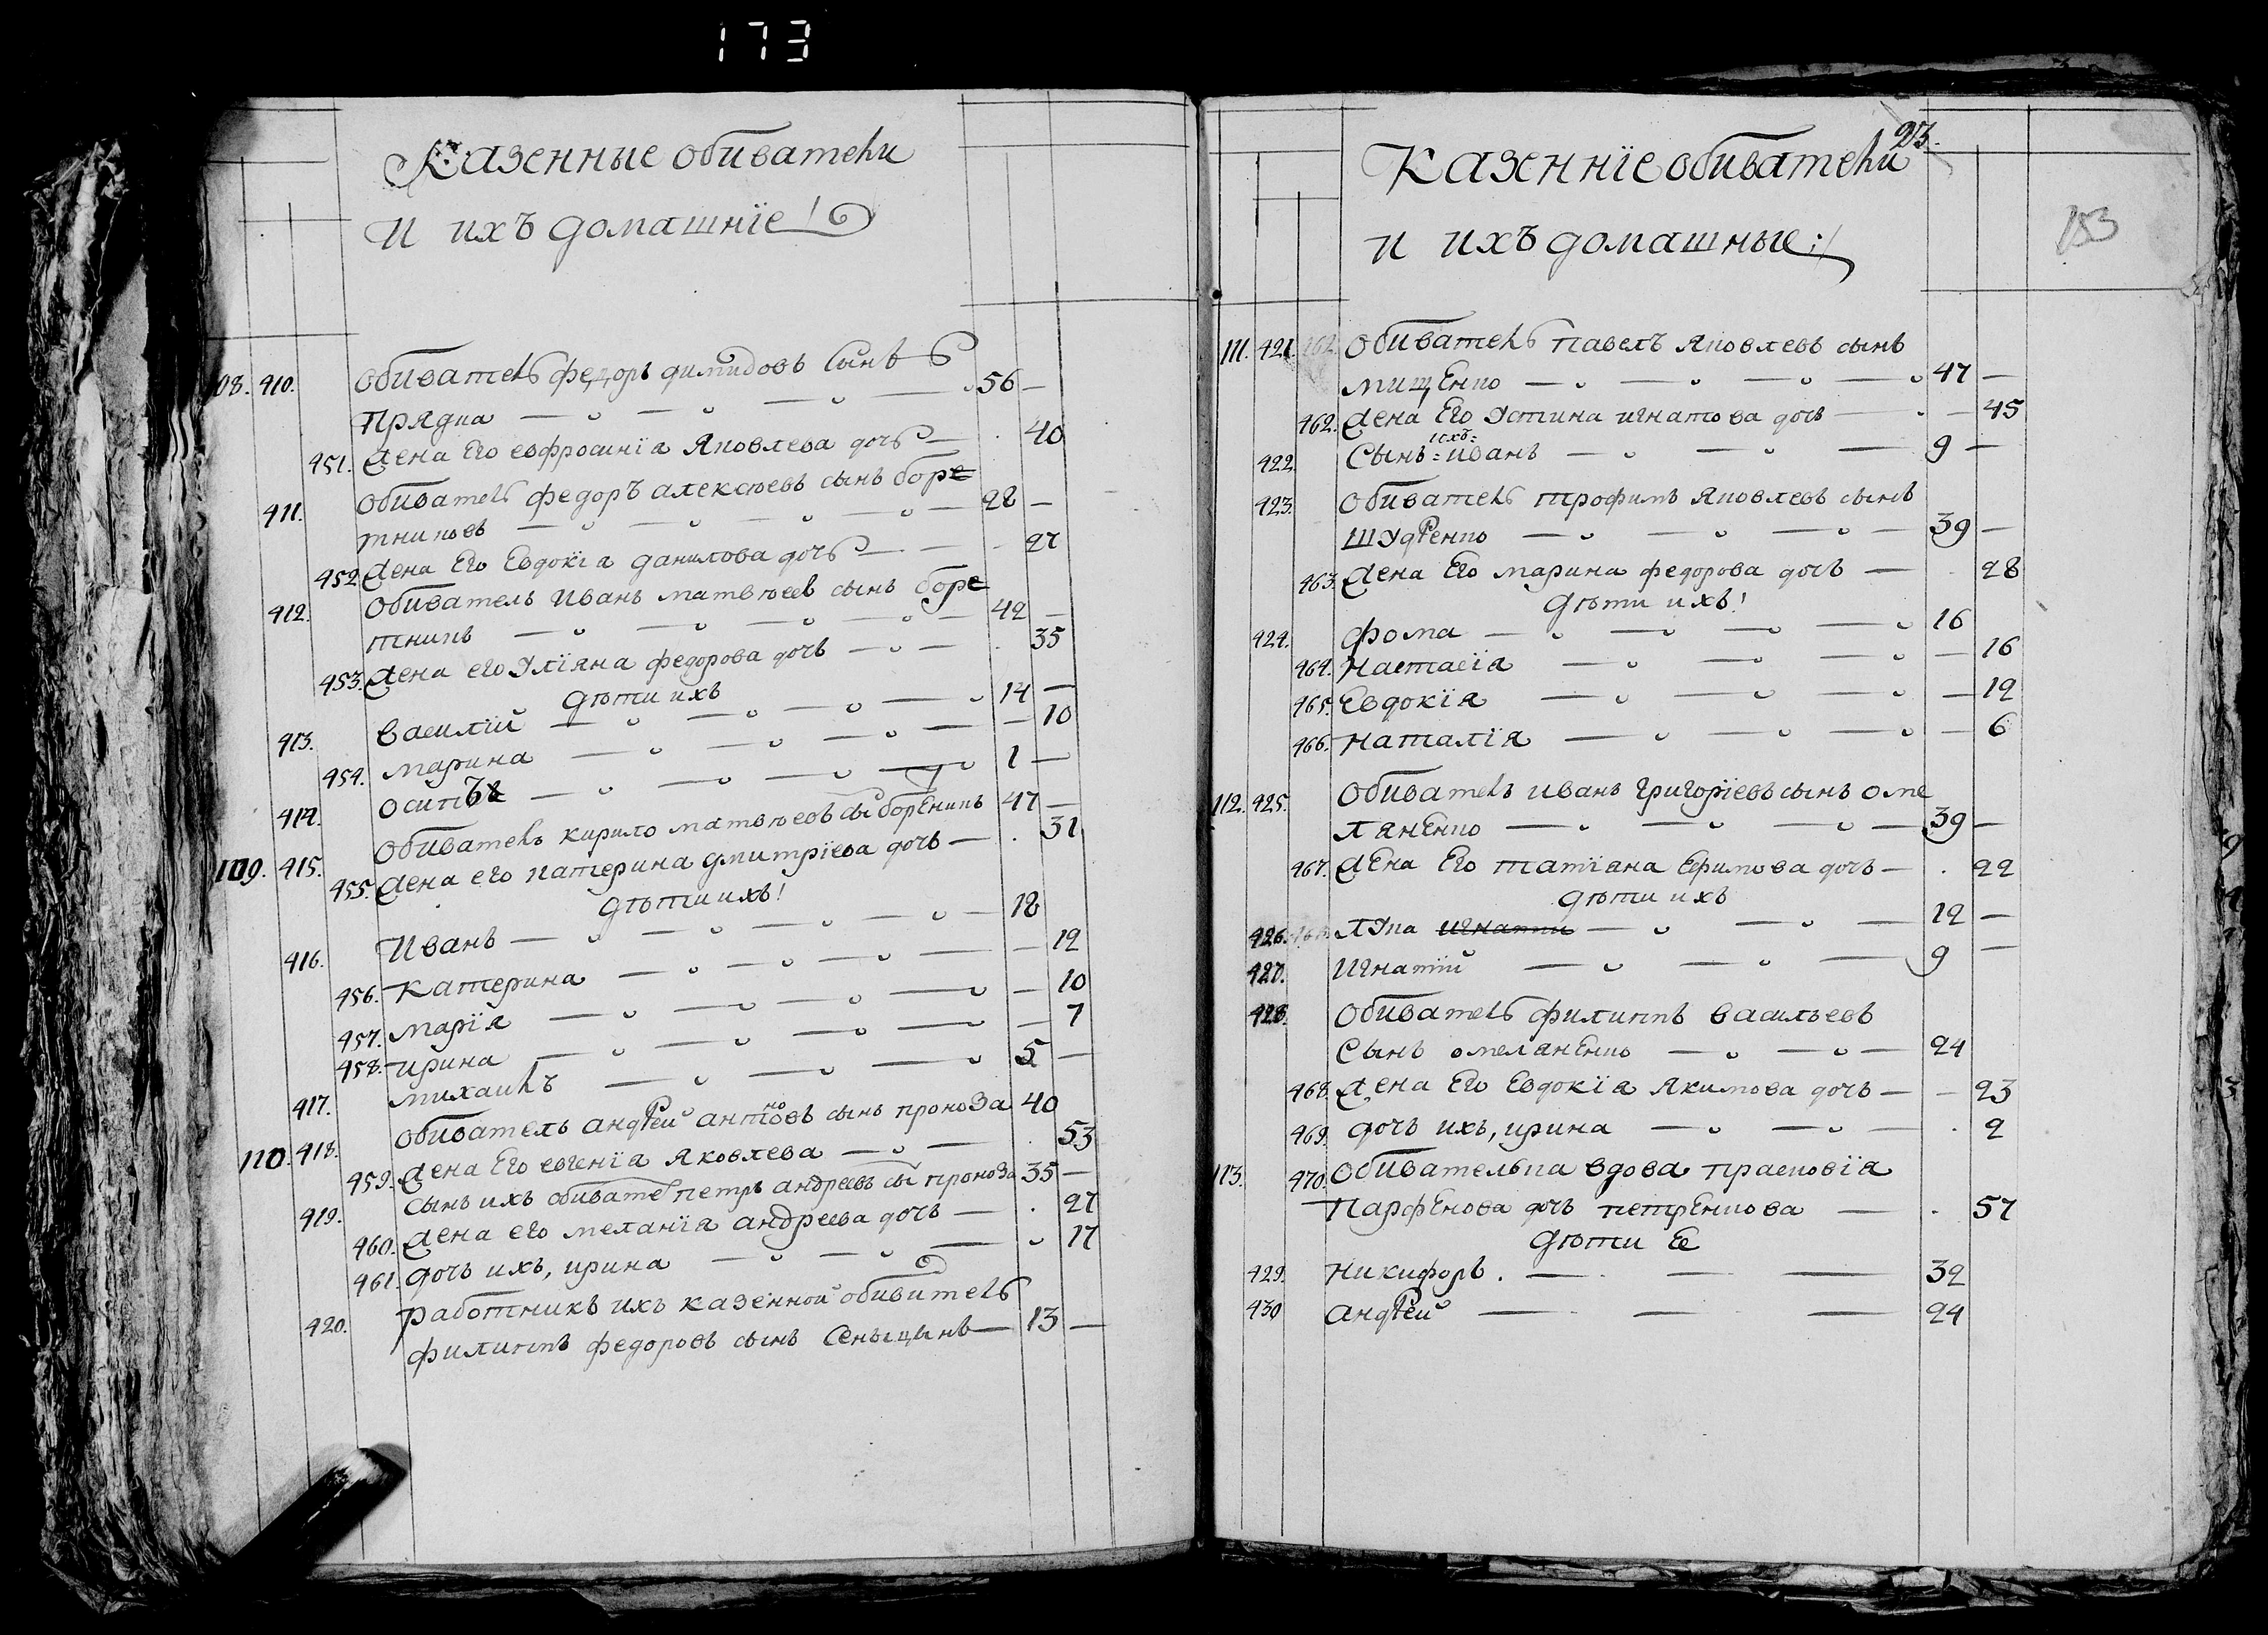 173
Казенные обиватели
и ихъ домашніе
108. 410. обиватель федоръ димидовъ сынъ
прядка 56 —
451. жена его евфросиніа яковлева дочь 40
411. обиватель федоръ алексѣевъ сынъ боре
тниковъ 28 —
452. жена его Евдокіа данилова дочь 27
412. обиватель иванъ матвѣевъ сынъ боре
тникъ 42 —
453. жена его Улїяна федорова дочь 35
дѣти ихъ
413. василїй 14 —
454. марина — 10
414. осипъ 1 —
109. 415. обиватель кирило матвѣевъ сы бореникъ 47 —
455. жена его катерина дмитрїева дочь 31
дѣти ихъ!
416. Иванъ 18
456. катерина — 12
457. марїя — 10
458. ирина — 7
417. михаилъ 5 —
110. 418. обиватель андрей антоновъ сынъ проноза 40
459. жена его евгенїя яковлева 53
419. сынъ ихъ обивате петръ андреевъ сы проноза 35 —
460. жена его меланїя андреева дочь 27
461. дочь ихъ, ирина 17
420. работникъ ихъ казенной обиватель
филиппъ федоровъ сынъ сеньщынъ 13 —
23.
Казеннїе обиватели
и ихъ домашные:
153
111. 421. 162. обиватель павелъ яковлевъ сынъ
мищенко 47 —
462. жена его устина игнатова дочь — 45
422. сынъ ихъ: иванъ 9 —
423. обиватель трофимъ яковлевъ сынъ
шудренко 39 —
463. жена его марина федорова дочь 28
дѣти ихъ!
424. фома 16
464. настасїя — 16
465. Евдокїя — 12
466. наталїя — 6
112. 425. обиватель иванъ григорїевъ сынъ оме
ляненко 39 —
467. жена его татїана ефимова дочь 22
дѣти ихъ
426. лука игнатий 12 —
427. игнатїй 9 —
428. обиватель филиппъ васильевъ
сынъ омеляненко 24
468. жена его Евдокїя якимова дочь — 23
469. дочь ихъ, ирина 2
113. 470. обивателька вдова прасковїя
парфенова дочь петренкова 57
дѣти ее
429. никифоръ 32
430 андрей 24